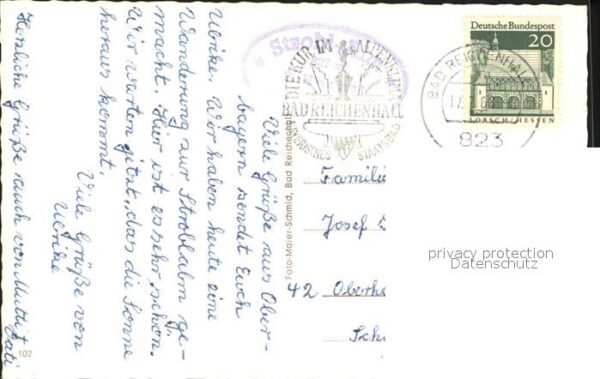 Viele Grüße aus Ober-
bayern sendet Euch
Ulrike. Wir haben heute eine
Wanderung zur Stroblalm ge-
macht. Hier ist es sehr schön.
Wir warten jetzt, das die Sonne
heraus kommt.
Viele Grüße von
Ulrike
Herzliche Grüße auch von Mutti + Vati
Foto-Maier-Schmid, Bad Reichenhall
102
DIE KUR IM ALPENKLIMA
BAD REICHENHALL
BAYERISCHES STAATSBAD
BAD REICHENHALL
823
Deutsche Bundespost
20
LORSCH/HESSEN
Familie
Josef
42 Oberh
privacy protection
Datenschutz